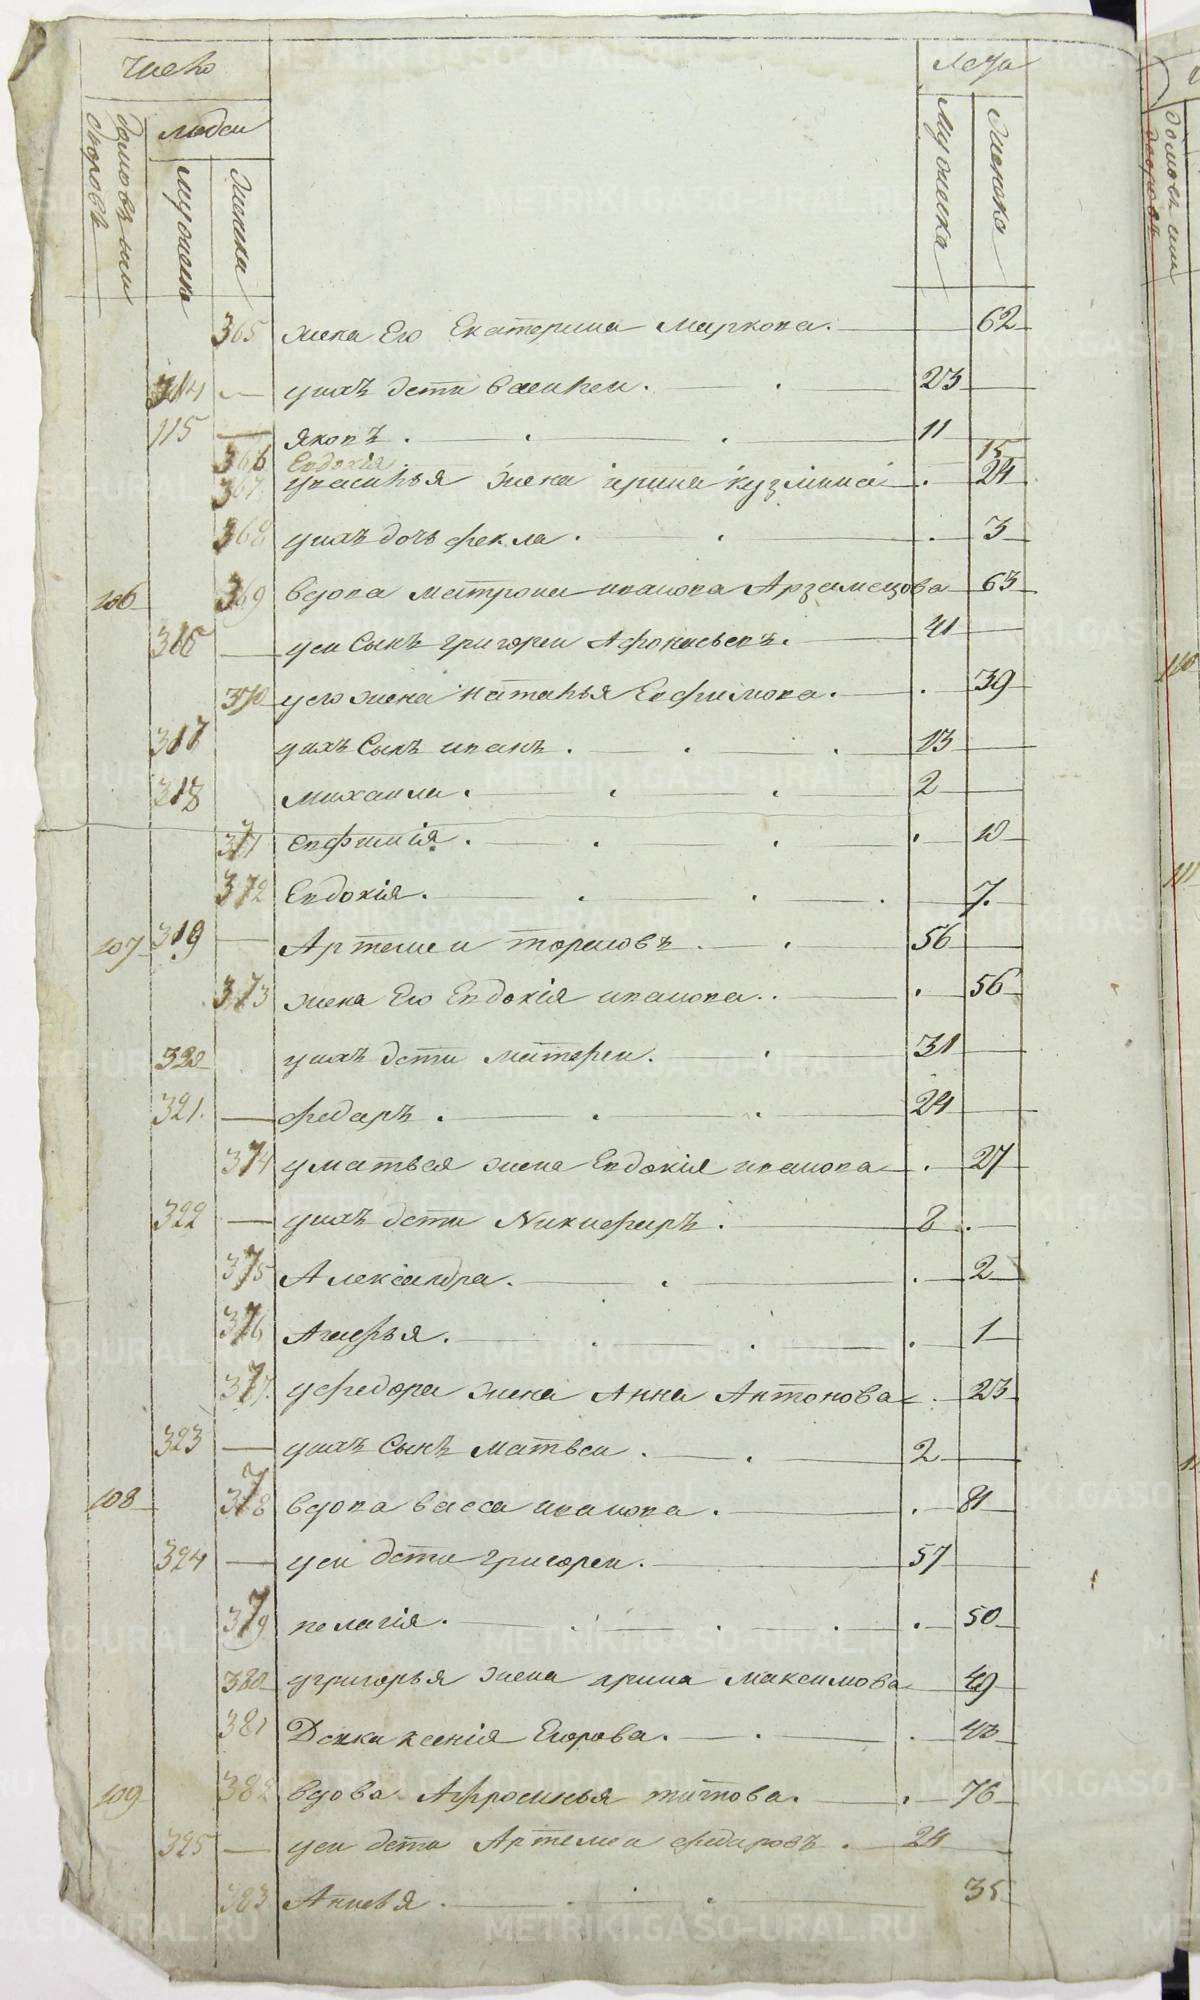 Число
Лета
домовъ или дворовъ
людеи
мужеска
женска
Мужеска
Женска
365 жена Его Екатерина Маркова. 62
314 — унихъ дети Василеи. 23
115 — Яковъ. 11
366 Евдокія 15
367 уВасилья жена ирина кузмина 24
368 унихъ дочь фекла. 3
106 369 вдова матрона иванова Арзамасцова 63
316 — уеи Сынъ григореи Афонасьевъ. 41
370 уего жена наталья Евфимова. 39
317 унихъ Сынъ иванъ. 13
318 михаила. 2
371 евфимія. 10
372 Евдокія. 7.
107 319 — Артемеи торховъ. 56
373 жена Его Евдокія иванова. 56
320 унихъ дети матвеи. 31
321. — федаръ. 24
374 уматвея жена Евдокія иванова 27
322 — унихъ дети Никифаръ. 8
375 Александра. 2
376 Агафья. 1
377. уфедора жена Анна Антонова 23
323 — унихъ Сынъ матвеи. 2
108 378 вдова васса иванова. 81
324 — уеи дети григореи. 57
379 пелагія. 50
380 угригорья жена ирина максимова 49
381 Девка ксенія Егорова. 40
109 382 вдова Афросинья титова. 76
325 — уеи дети Артемеи федаровъ. 24
383 Анисья. 35
METRIKI.GASO-URAL.RU